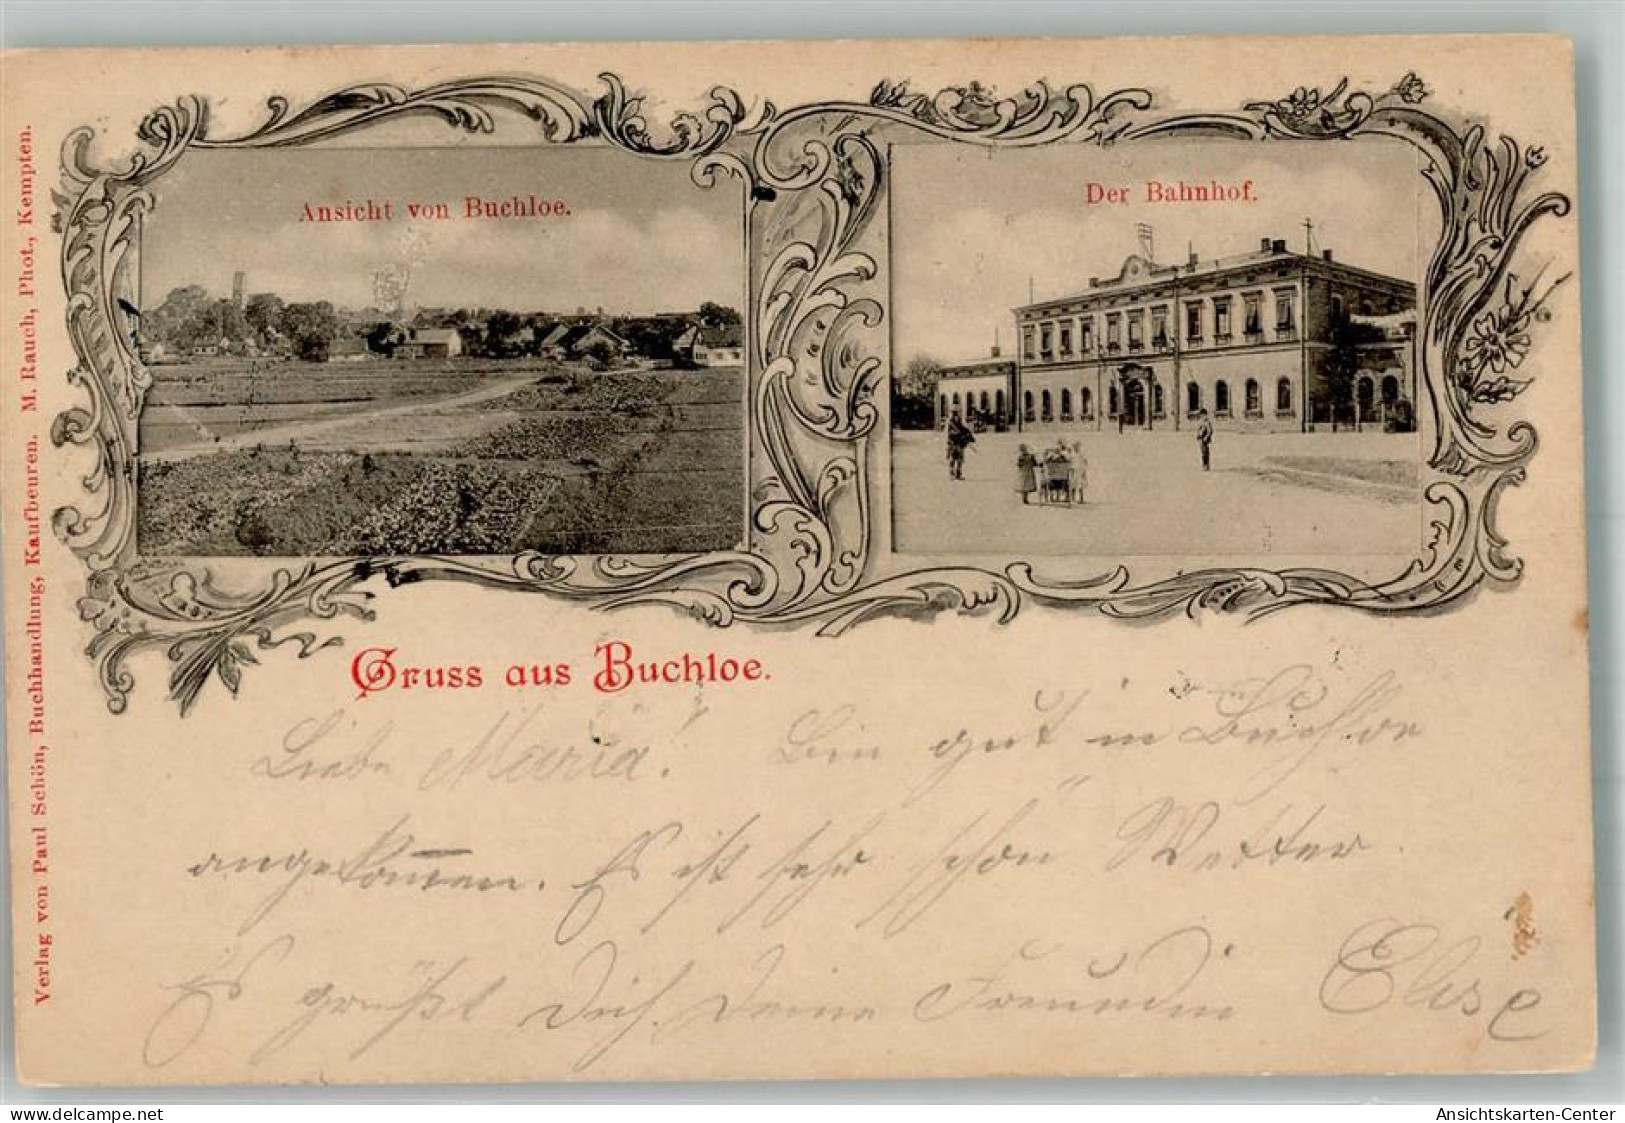 Verlag von Paul Schön, Buchhandlung, Kaufbeuren. M. Rauch, Phot., Kempten.
Ansicht von Buchloe.
Der Bahnhof.
Gruss aus Buchloe.
Liebe Maria! Bin gut in Buchloe
angekom̅en. Es ist sehr schön Wetter.
Es grüßt Dich Deine Freundin Elise
www.delcampe.net
Ansichtskarten-Center